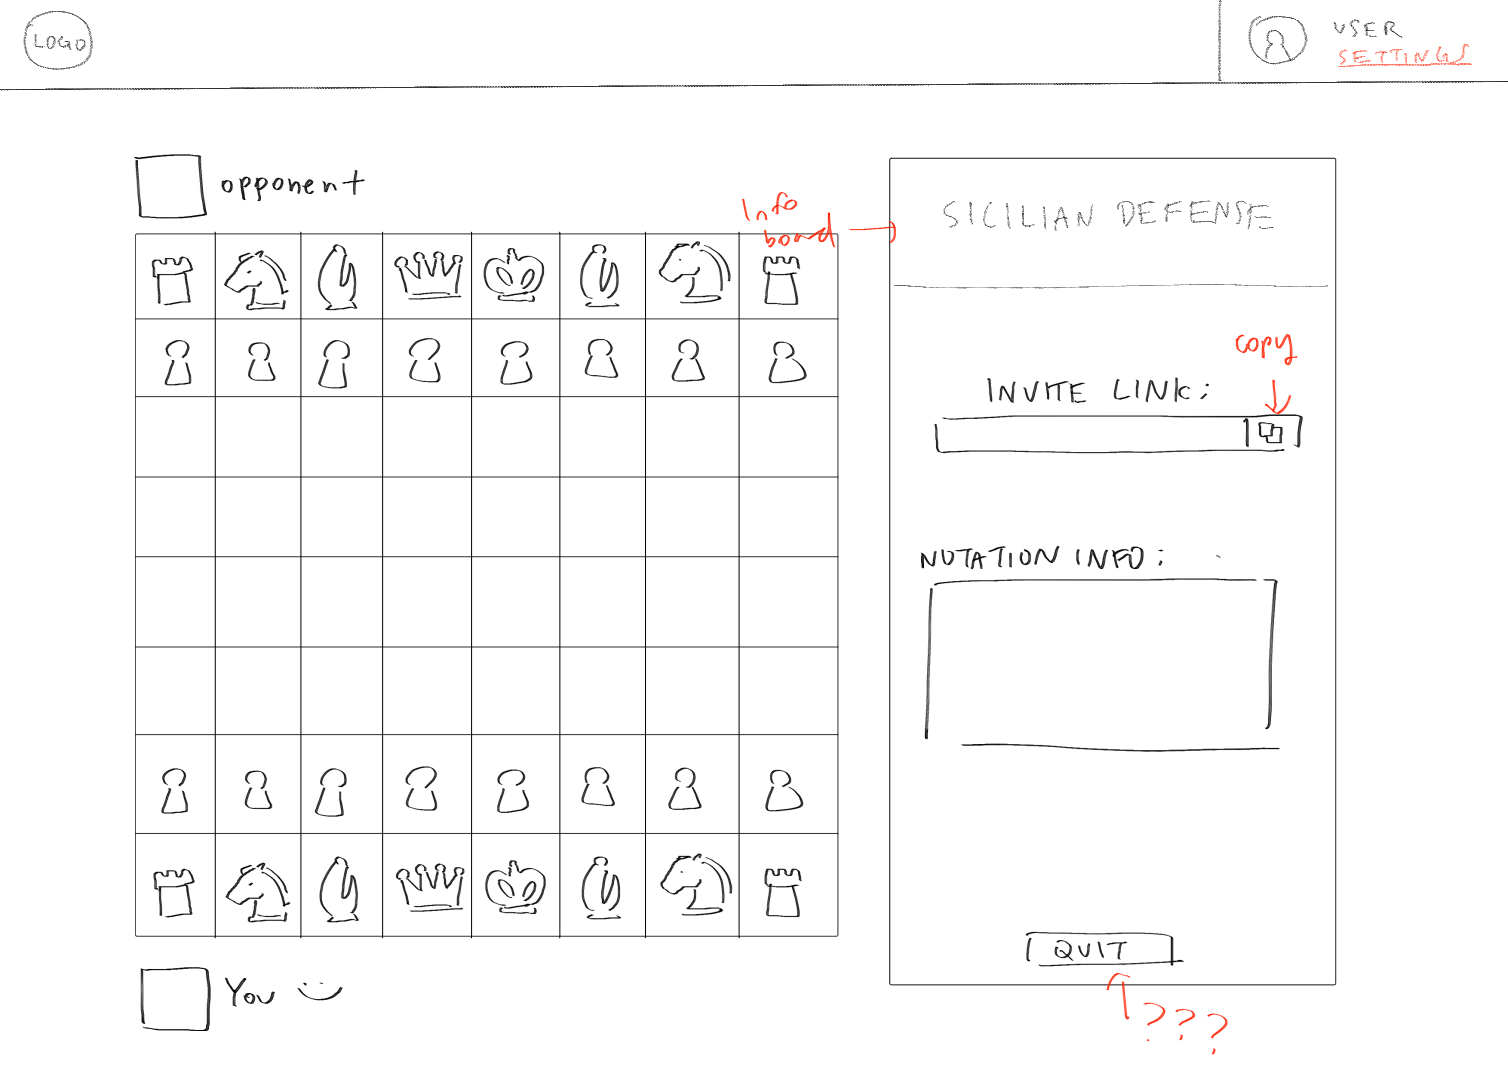 LOGO
USER
SETTINGS
opponent
Info
board
SICILIAN DEFENSE
copy
INVITE LINK:
NOTATION INFO:
QUIT
You
???